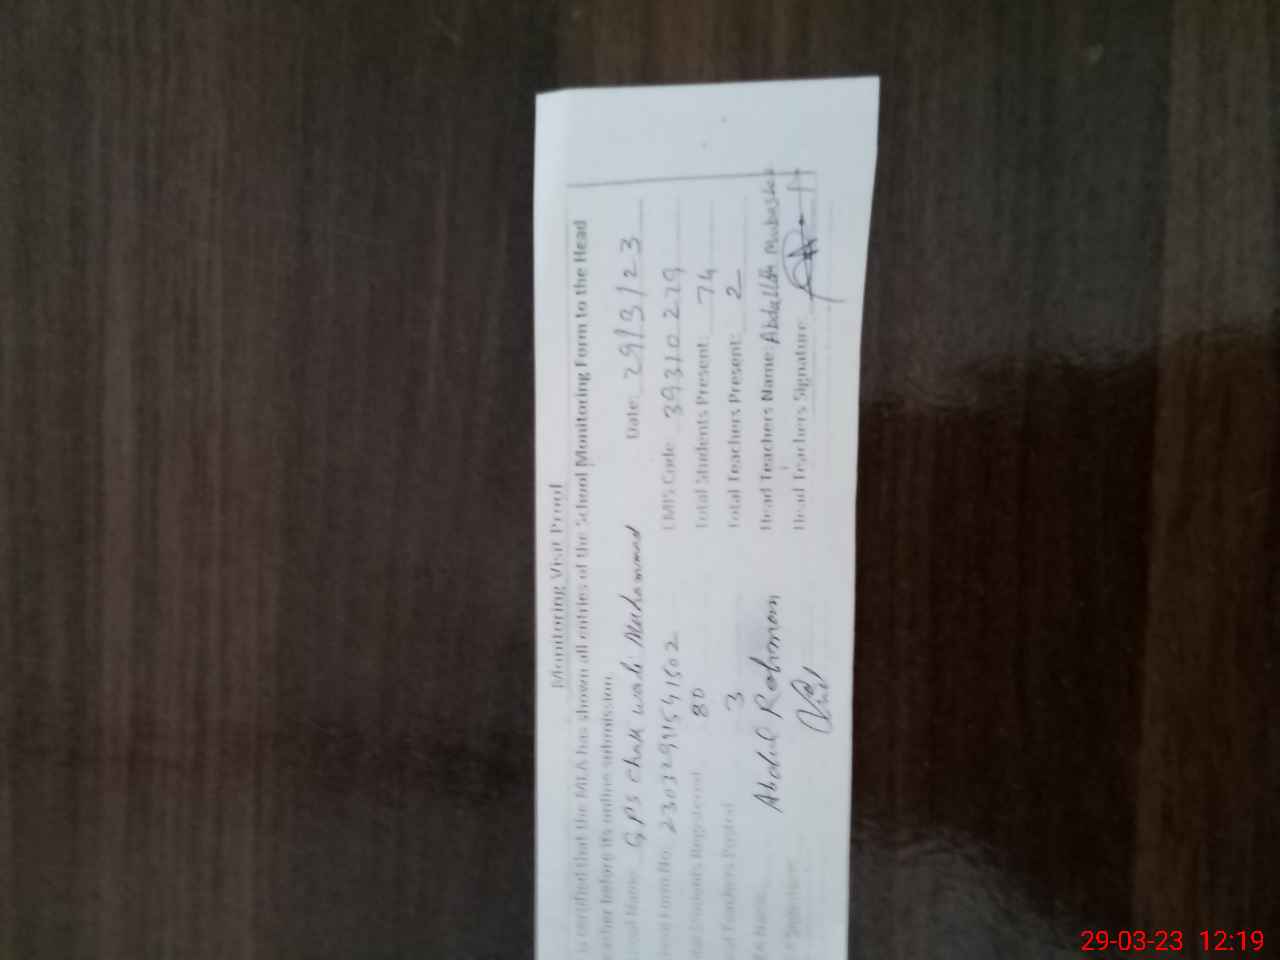 Monitoring Visit Proof
is certified that the MEA has shown all entries of the School Monitoring Form to the Head
before its online submission
Name GPS Chak wali Muhammad Date: 29/3/23
Form No. 2303291541502 EMIS Code 39310229
Students Registered 80 Total Students Present: 74
Teachers Posted 3 Total Teachers Present: 2
Name Abdul Rehman Head Teachers Name: Abdullah Mubasher
Head Teachers Signature:
29-03-23 12:19